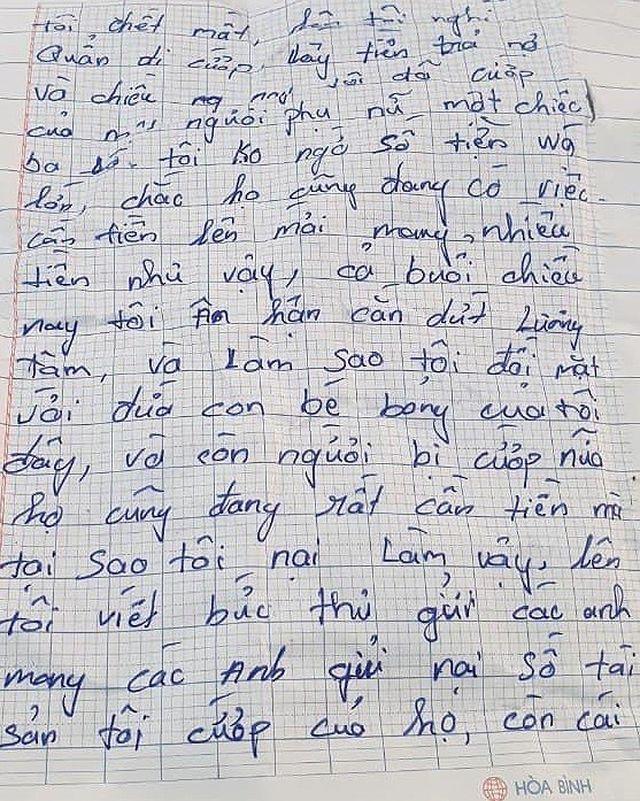 tôi, chết mất, lên tôi nghĩ
Quẩn đi cướp, lấy tiền trả nợ
và chiều tôi đã cướp
của người phụ nữ một chiếc
ba tôi ko ngờ số tiền wá
lớn, chắc họ cũng đang có việc
cần tiền lên mới mang nhiều
tiền như vậy, cả buổi chiều
nay tôi ân hận cắn dứt Lương
tâm, và Làm sao tôi đối mặt
với đứa con bé bỏng của tôi
đây, và còn người bị cướp nữa
họ cũng đang rất cần tiền mà
tại sao tôi nại Làm vậy, lên
tôi viết bức thư gửi các anh
mong các Anh gửi nại số tài
sản tôi cướp của họ, còn cái
HÒA BÌNH